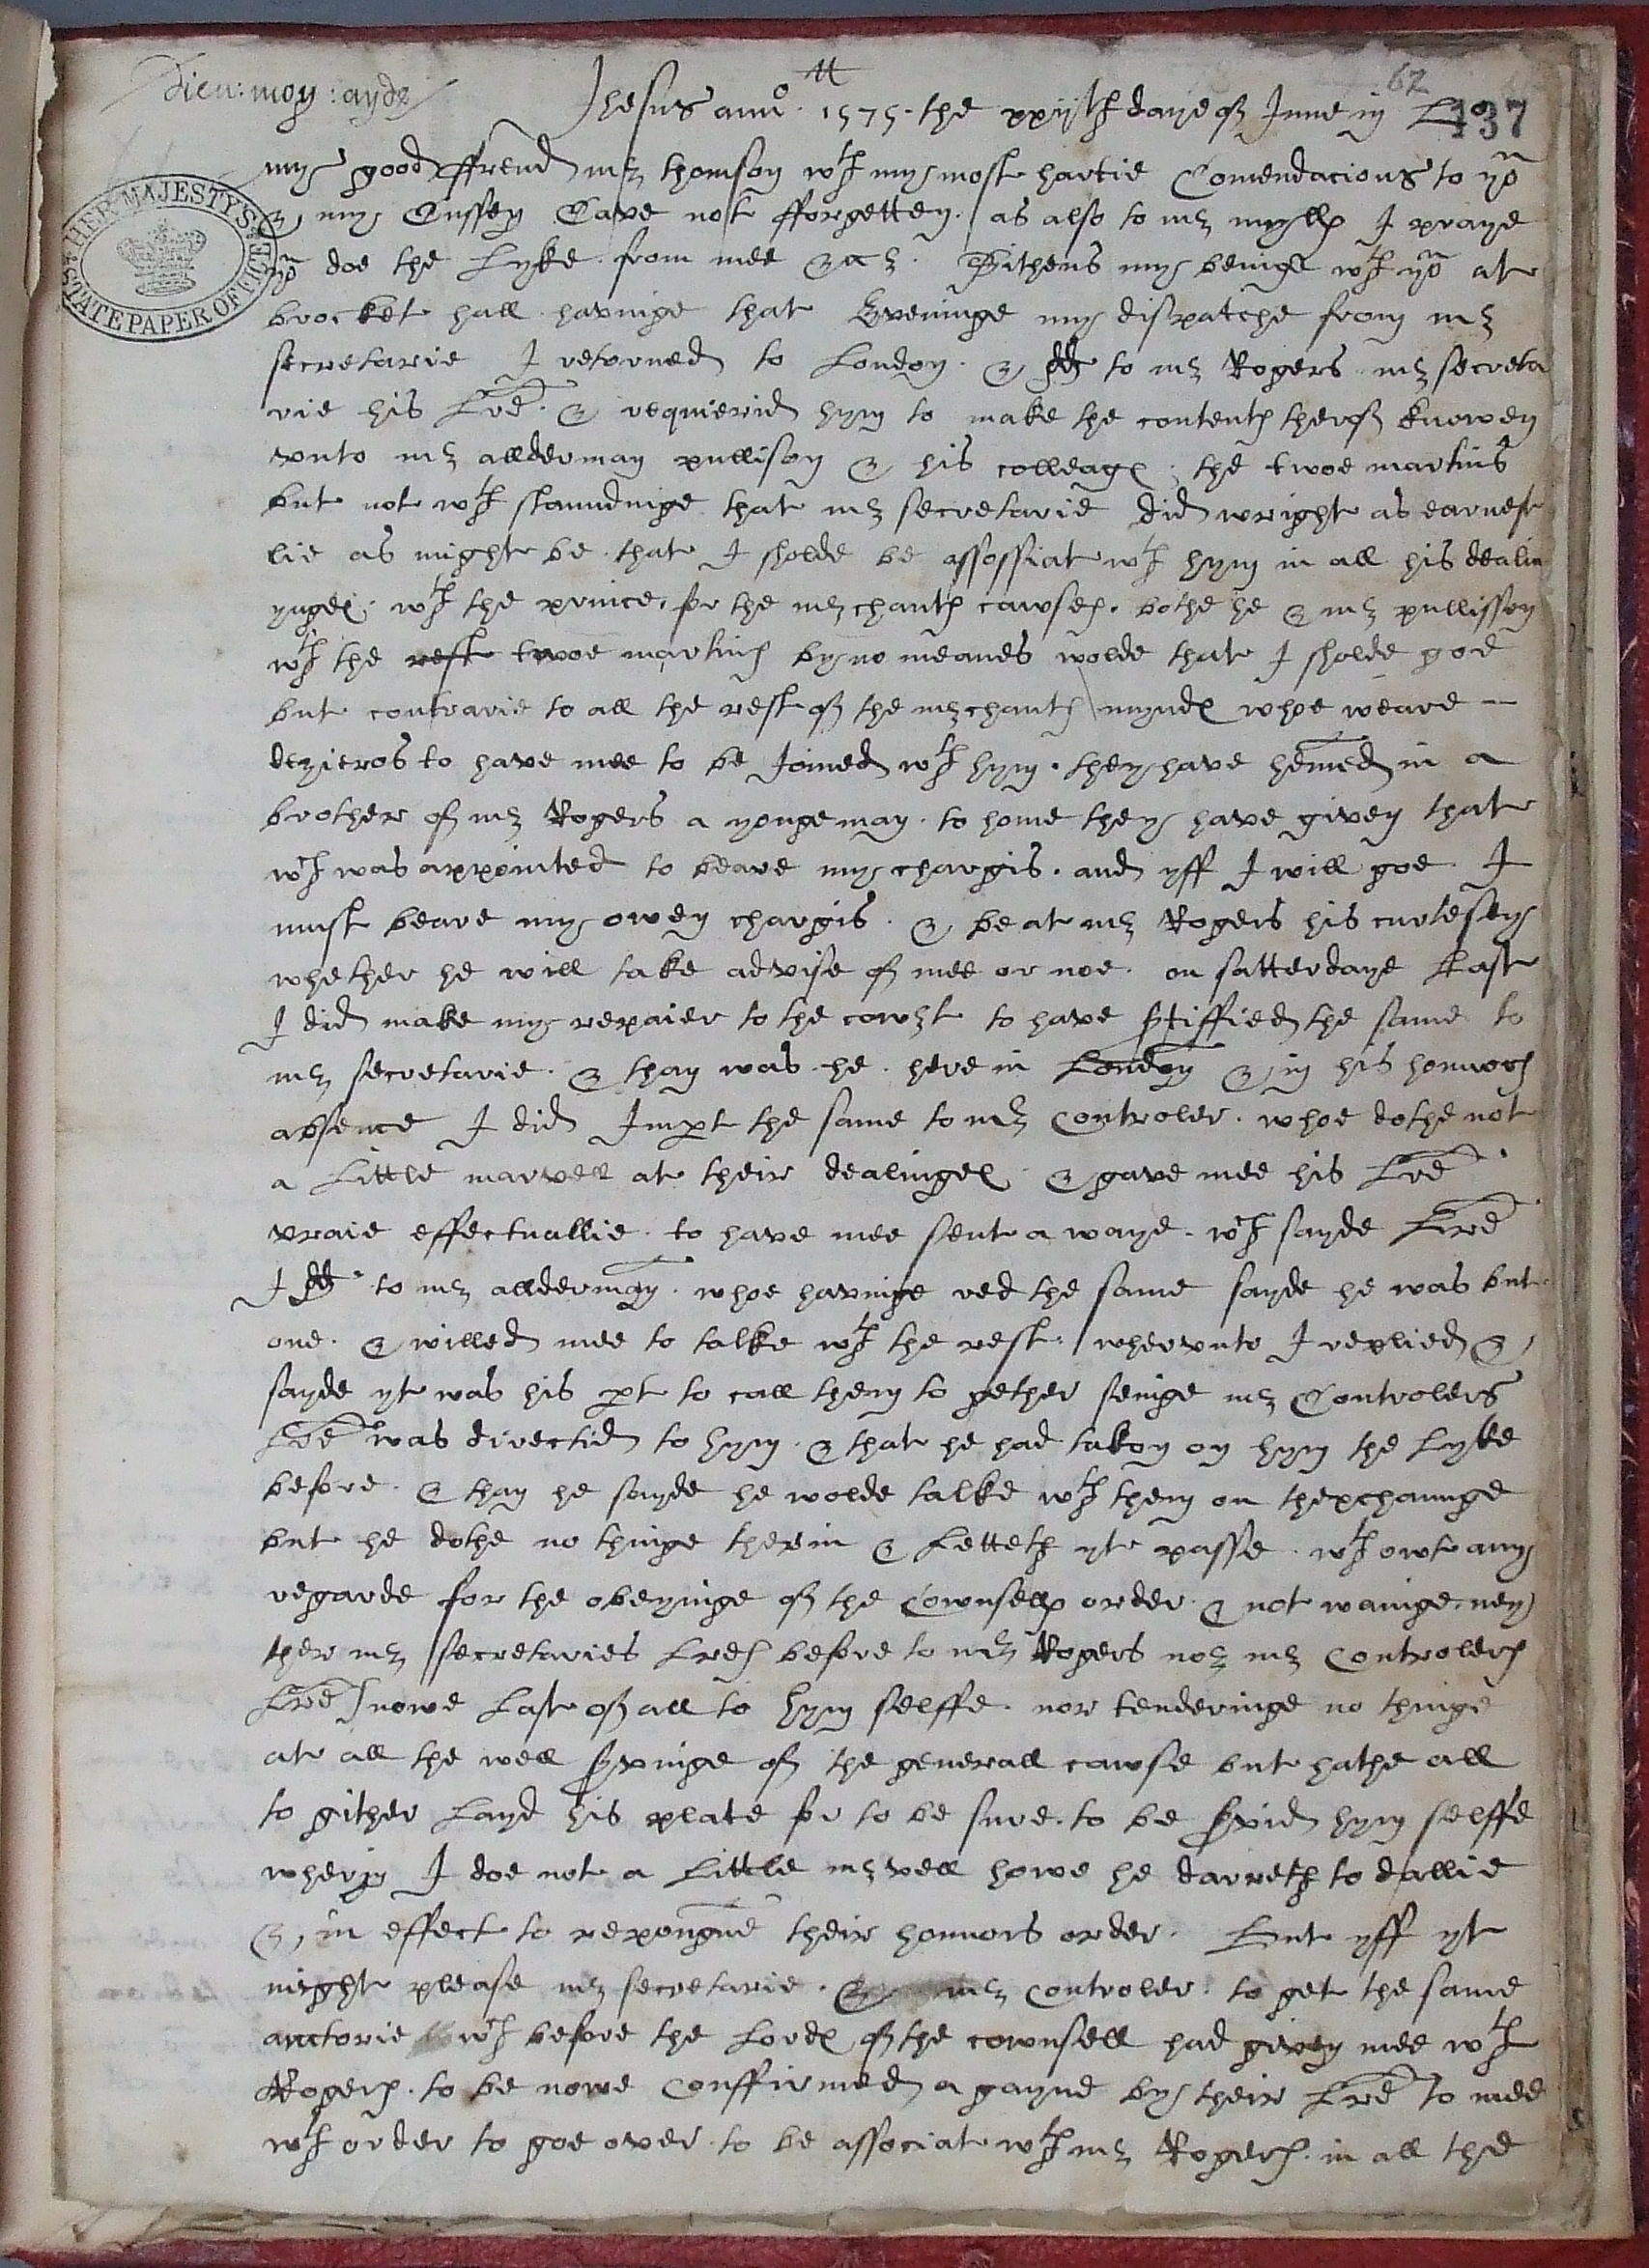 Dieu : moy : ayde
M
62
Jhesus anno . 1575 . the xxijth daye of June in Lo
137
my good ffrend mr thomson wth my most hartie Comendacions to yow
& my Cussen Cave not fforgetten . as also to mr mylls I praye
yow doe the Lyke from mee &c . Sithens my beinge wth yow at
brocket hall havinge that Eveninge my dispatche from mr
secretarie I retorned to London . & dd to mr Rogers mr secreta
rie his Lre . & requierid hym to make the contents therof knowen
vnto mr allderman pullison & his colleags . the twoe martins
but not wth staundinge that mr secretarie did wright as earnest
lie as might be . that I sholde be assossiat wth hym in all his dealin
ynges . wth the prince . for the mrchants cawses . bothe he & mr pullisson
wth the rest twoe martins by no meanes wolde that I sholde goe
but contrarie to all the rest of the mrchants mynds whoe weare —
dezieros to have mee to be Joined wth hym . they have hemed in a
brother of mr Rogers a yonge man . to home they have given that
wch was appointed to beare my chargis . and yff I will goe I
must beare my owen chargis . & be at mr Rogers his curtesey
whether he will take advise of mee or noe . on satterdaye Last
I did make my repaier to the cowrt to have sertiffied the same to
mr secretarie . & than was he here in London & in his honnors
absence I did Impt the same to mr Controler . whoe dothe not
a Little marvell at their dealinges & gave mee his Lre
vraie effectuallie . to have mee sent a waye . wch sayde Lre
I dd to mr allderman . whoe havinge red the same sayde he was but
one . & willed mee to talke wth the rest . whervnto I replied &
sayde yt was his pt to call them to gether seinge mr Controlers
Lre was directid to hym . & that he had takon on hym the Lyke
before . & than he sayde he wolde talke wth them on thexchaunge
but he dothe no thinge therin & Letteth yt passe . wth owt any
regarde for the obeyinge of the Cownsells order & not wainge ney
ther mr secretaries Lres before to mr Rogers nor mr Controlers
Lre nowe Last of all to hym selffe . nor tenderinge no thinge
at all the well servinge of the generall cawse but hathe all
to gither Layd his plate for to be sure . to be servid hym selffe
wherin I doe not a Little mrvell howe he darreth to dallie
& in effect to repongne their honnors order . But yff yt
might please mr secretarie . & mr Controler . to get the same
auctorie wch before the Lords of the cownsell had given mee wth
Rogers . to be nowe Conffirmed a gayne by their Lre to mee
wth order to goe over . to be associat wth mr Rogers . in all the
HER MAJESTY'S STATE PAPER OFFICE